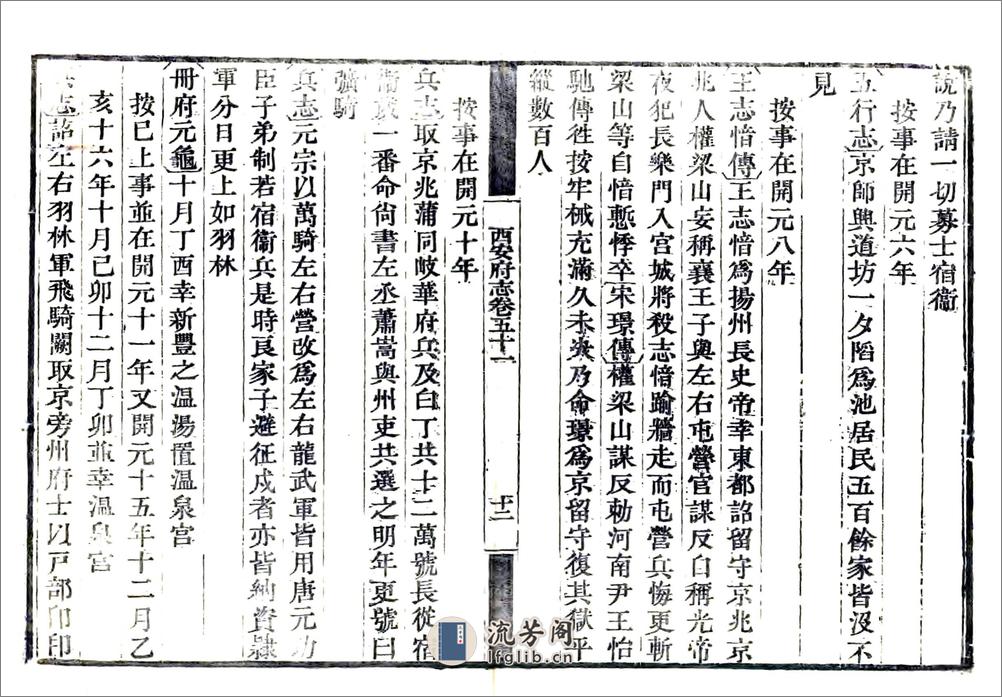 說乃請一切募士宿衞
按事在開元六年
五行志京師興道坊一夕䧟爲池居民五百餘家皆没不
見
按事在開元八年
王志愔傳王志愔爲揚州長史帝幸東都詔留守京兆京
兆人權梁山妄稱襄王子與左右屯營官謀反自稱光帝
夜犯長樂門入宮城將殺志愔踰牆走而屯營兵悔更斬
梁山等自愔慙悸卒宋璟傳權梁山謀反勅河南尹王怡
馳傳徃按牢械充滿久未决乃命璟爲京留守復其獄平
縱數百人
西安府志卷五十一
十二
按事在開元十年
兵志取京兆蒲同岐華府兵及白丁共十二萬號長從宿
衞歲一番命尙書左丞蕭嵩與州吏共選之明年更號曰
彍騎
兵志元宗以萬騎左右營改爲左右龍武軍皆用唐元功
臣子弟制若宿衞兵是時良家子避征戍者亦皆納資隸
軍分日更上如羽林
冊府元龜十月丁酉幸新豐之温湯置温泉宮
按已上事並在開元十一年又開元十五年十二月乙
亥十六年十月己卯十二月丁卯並幸温泉宮
志詔左右羽林軍飛騎闕取京旁州府士以戸部印印
流芳阁
lfglib.cn